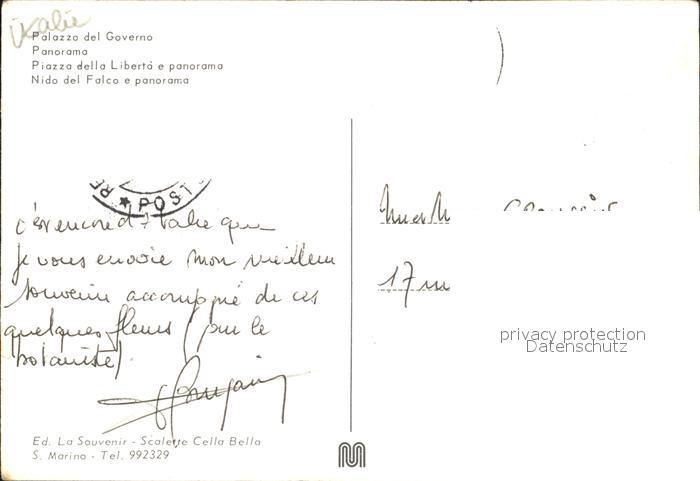 italie
Palazzo del Governo
Panorama
Piazza della Libertà e panorama
Nido del Falco e panorama
POST
c'est encore d'Italie que
je vous envoie mon meilleur
souvenir accompagné de ces
quelques fleurs (pour le
botaniste)
17
privacy protection
Datenschutz
Ed. La Souvenir - Scalette Cella Bella
S. Marino - Tel. 992329